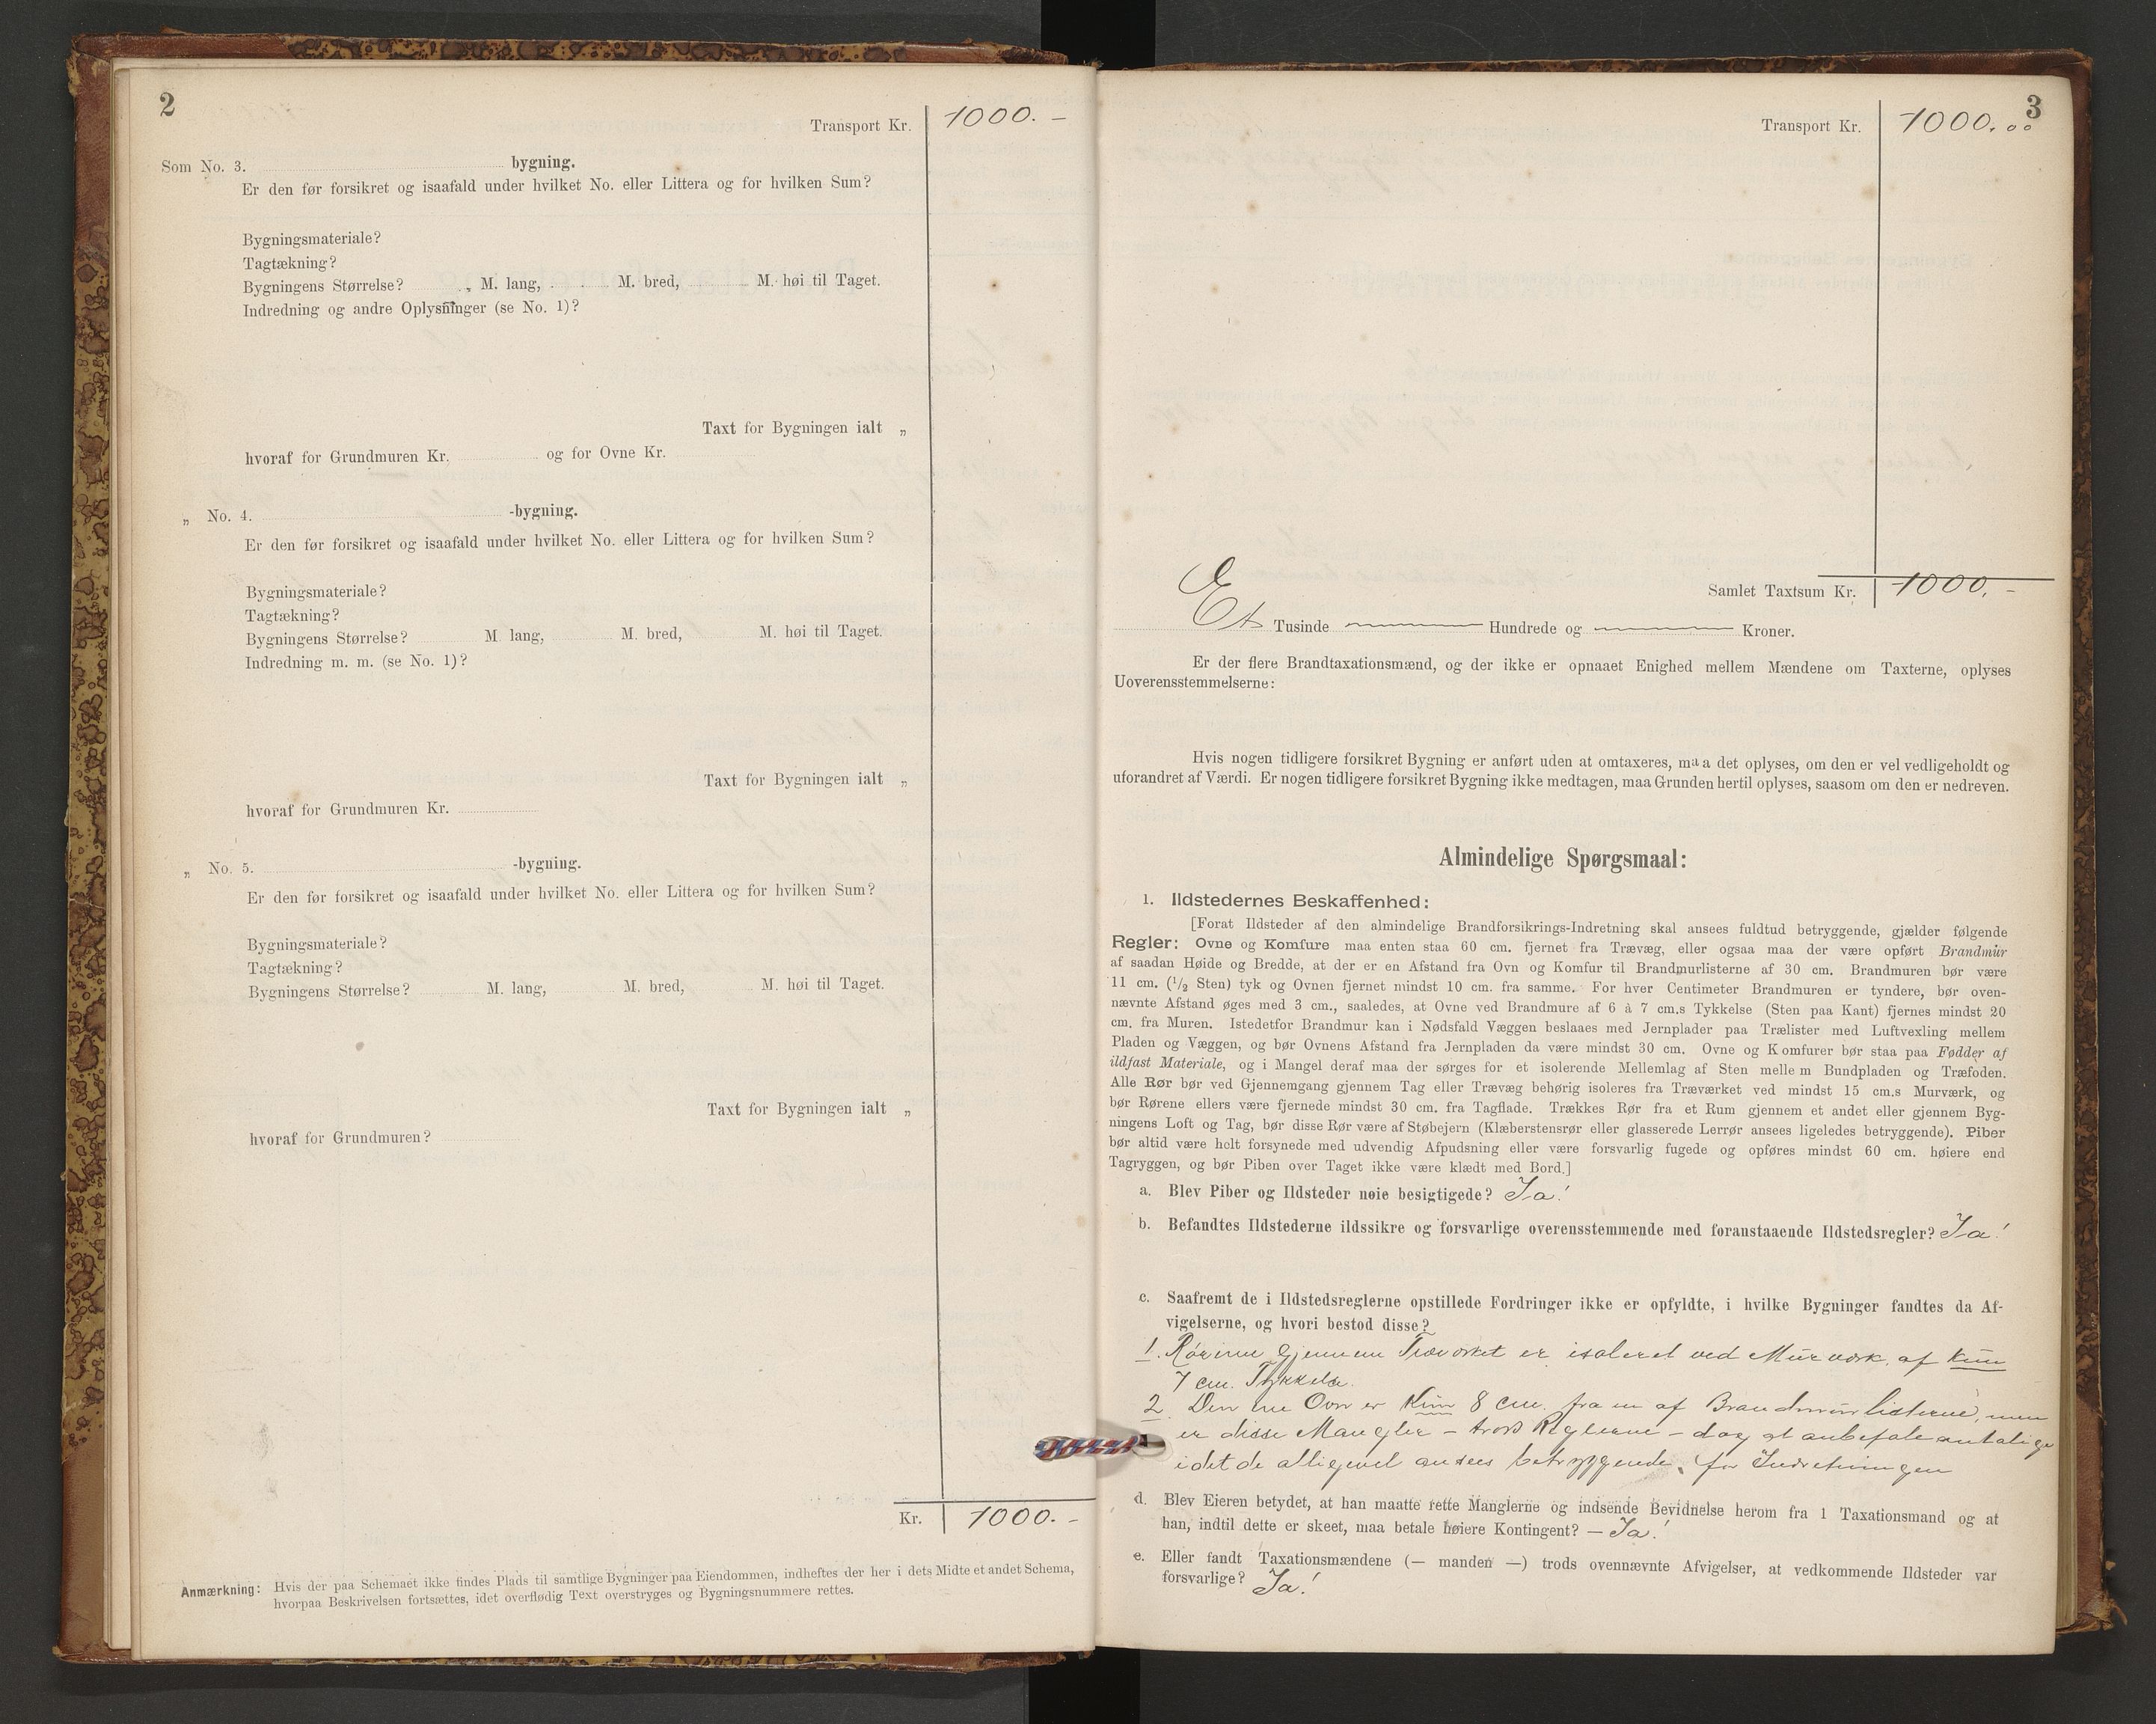 2
Transport Kr. 1000. –
Som No. 3. bygning.
Er den før forsikret og isaafald under hvilket No. eller Littera og for hvilken Sum?
Bygningsmateriale?
Tagtækning?
Bygningens Størrelse? „ M. lang, M. bred, M. høi til Taget.
Indredning og andre Oplysninger (se No. 1)?
Taxt for Bygningen ialt „
hvoraf for Grundmuren Kr. og for Ovne Kr.
„ No. 4. -bygning.
Er den før forsikret og isaafald under hvilket No. eller Littera og for hvilken Sum?
Bygningsmateriale?
Tagtækning?
Bygningens Størrelse? M. lang, M. bred, M. høi til Taget.
Indredning m. m. (se No. 1)?
Taxt for Bygningen ialt „
hvoraf for Grundmuren Kr.
„ No. 5. -bygning.
Er den før forsikret og isaafald under hvilket No. eller Littera og for hvilken Sum?
Bygningsmateriale?
Tagtækning?
Bygningens Størrelse? M. lang, M. bred, M. høi til Taget.
Taxt for Bygningen ialt „
hvoraf for Grundmuren?
Kr. 1000. -
Anmærkning: Hvis der paa Schemaet ikke findes Plads til samtlige Bygninger paa Eiendommen, indheftes der her i dets Midte et andet Schema,
hvorpaa Beskrivelsen fortsættes, idet overflødig Text overstryges og Bygningsnummere rettes.
3
Transport Kr. 1000.00
Samlet Taxtsum Kr. 1000. -
Et Tusinde Hundrede og Kroner.
Er der flere Brandtaxationsmænd, og der ikke er opnaaet Enighed mellem Mændene om Taxterne, oplyses
Uoverensstemmelserne:
Hvis nogen tidligere forsikret Bygning er anført uden at omtaxeres, maa det oplyses, om den er vel vedligeholdt og
uforandret af Værdi. Er nogen tidligere forsikret Bygning ikke medtagen, maa Grunden hertil oplyses, saasom om den er nedreven.
Almindelige Spørgsmaal:
1. Ildstedernes Beskaffenhed:
[Forat Ildsteder af den almindelige Brandforsikrings-Indretning skal ansees fuldtud betryggende, gjælder følgende
Regler: Ovne og Komfure maa enten staa 60 cm. fjernet fra Trævæg, eller ogsaa maa der være opført Brandmur
af saadan Høide og Bredde, at der er en Afstand fra Ovn og Komfur til Brandmurlisterne af 30 cm. Brandmuren bør være
11 cm. (1/2 Sten) tyk og Ovnen fjernet mindst 10 cm. fra samme. For hver Centimeter Brandmuren er tyndere, bør oven-
nævnte Afstand øges med 3 cm., saaledes, at Ovne ved Brandmure af 6 à 7 cm.s Tykkelse (Sten paa Kant) fjernes mindst 20
cm. fra Muren. Istedetfor Brandmur kan i Nødsfald Væggen beslaaes med Jernplader paa Trælister med Luftvexling mellem
Pladen og Væggen, og bør Ovnens Afstand fra Jernpladen da være mindst 30 cm. Ovne og Komfurer bør staa paa Fødder af
ildfast Materiale, og i Mangel deraf maa der sørges for et isolerende Mellemlag af Sten mellem Bundpladen og Træfoden.
Alle Rør bør ved Gjennemgang gjennem Tag eller Trævæg behørig isoleres fra Træværket ved mindst 15 cm.s Murværk, og
bør Rørene ellers være fjernede mindst 30 cm. fra Tagflade. Trækkes Rør fra et Rum gjennem et andet eller gjennem Byg-
ningens Loft og Tag, bør disse Rør være af Støbejern (Klæberstensrør eller glasserede Lerrør ansees ligeledes betryggende). Piber
bør altid være helt forsynede med udvendig Afpudsning eller være forsvarlig fugede og opføres mindst 60 cm. høiere end
Tagryggen, og bør Piben over Taget ikke være klædt med Bord.]
a. Blev Piber og Ildsteder nøie besigtigede? Ja!
b. Befandtes Ildstederne ildssikre og forsvarlige overensstemmende med foranstaaende Ildstedsregler? Ja!
c. Saafremt de i Ildstedsreglerne opstillede Fordringer ikke er opfyldte, i hvilke Bygninger fandtes da Af-
vigelserne, og hvori bestod disse?
1. Rørene gjennem Træværket er isoleret ved Murværk af kun
7 cm. Tykkelse.
2. Den ene Ovn er kun 8 cm. fra en af Brandmurlisterne, men
er disse Mangler – trods Reglerne – dog at anbefale antalige
idet de alligevel ansees betryggende for Indretningen
d. Blev Eieren betydet, at han maatte rette Manglerne og indsende Bevidnelse herom fra 1 Taxationsmand og at
han, indtil dette er skeet, maa betale høiere Kontingent? — Ja!
e. Eller fandt Taxationsmændene (— manden —) trods ovennævnte Afvigelser, at vedkommende Ildsteder var
forsvarlige? Ja!